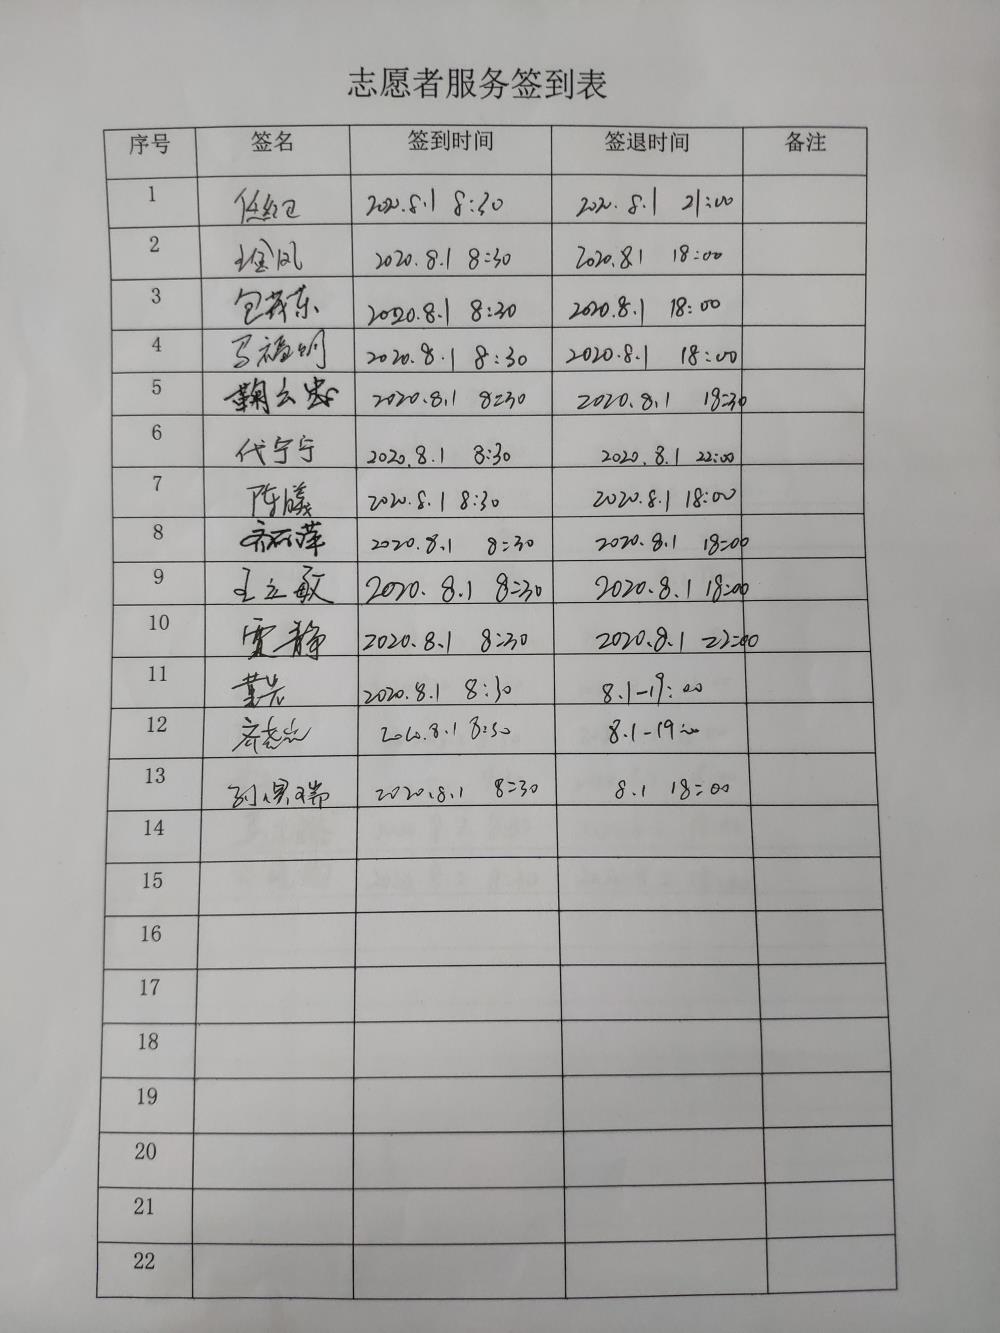 志愿者服务签到表
序号 签名 签到时间 签退时间 备注
1 任红卫 2020.8.1 8:30 2020.8.1 21:00
2 2020.8.1 8:30 2020.8.1 18:00
3 包茂东 2020.8.1 8:30 2020.8.1 18:00
4 马福明 2020.8.1 8:30 2020.8.1 18:00
5 鞠云忠 2020.8.1 8:30 2020.8.1 18:30
6 代宁宁 2020.8.1 8:30 2020.8.1 22:00
7 陈曦 2020.8.1 8:30 2020.8.1 18:00
8 齐丽萍 2020.8.1 8:30 2020.8.1 18:00
9 王立敏 2020.8.1 8:30 2020.8.1 18:00
10 贾静 2020.8.1 8:30 2020.8.1 22:00
11 2020.8.1 8:30 8.1-19:00
12 2020.8.1 8:30 8.1-19:00
13 2020.8.1 8:30 8.1 18:00
14
15
16
17
18
19
20
21
22